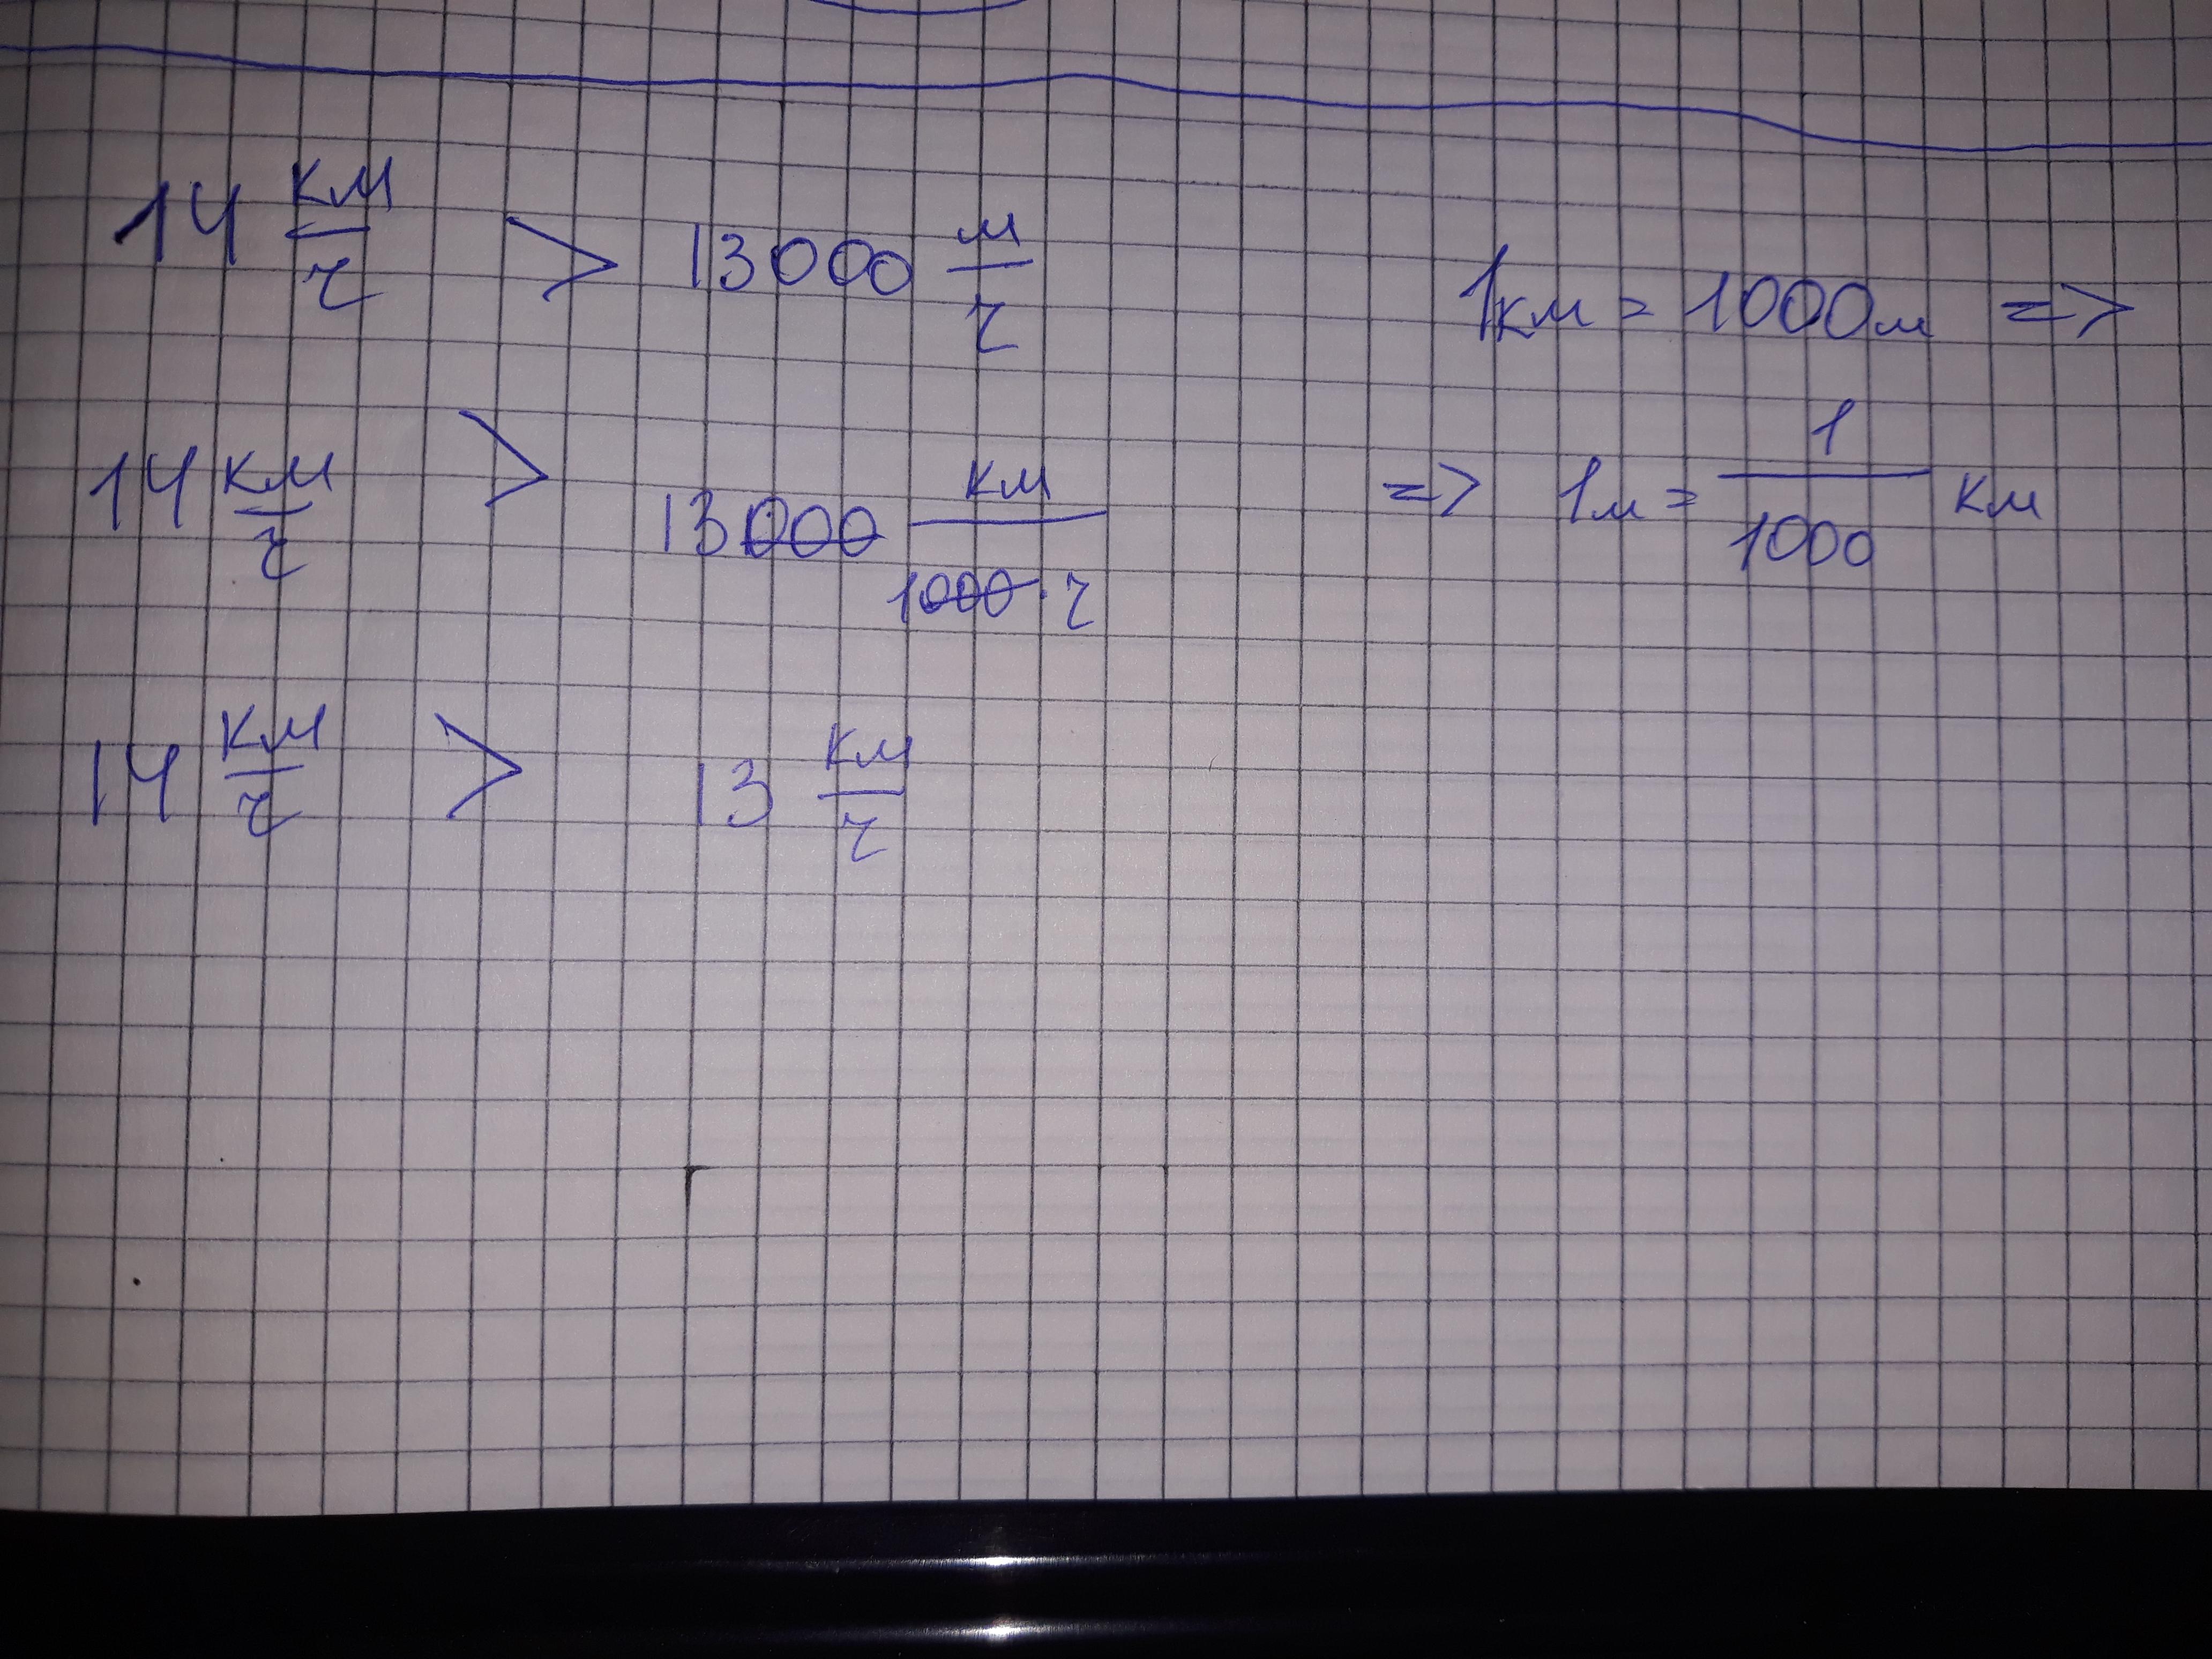 14 км/ч > 13000 м/ч
1км = 1000м =>
14 км/ч > 13000 км/1000·ч
=> 1м = 1/1000 км
14 км/ч > 13 км/ч